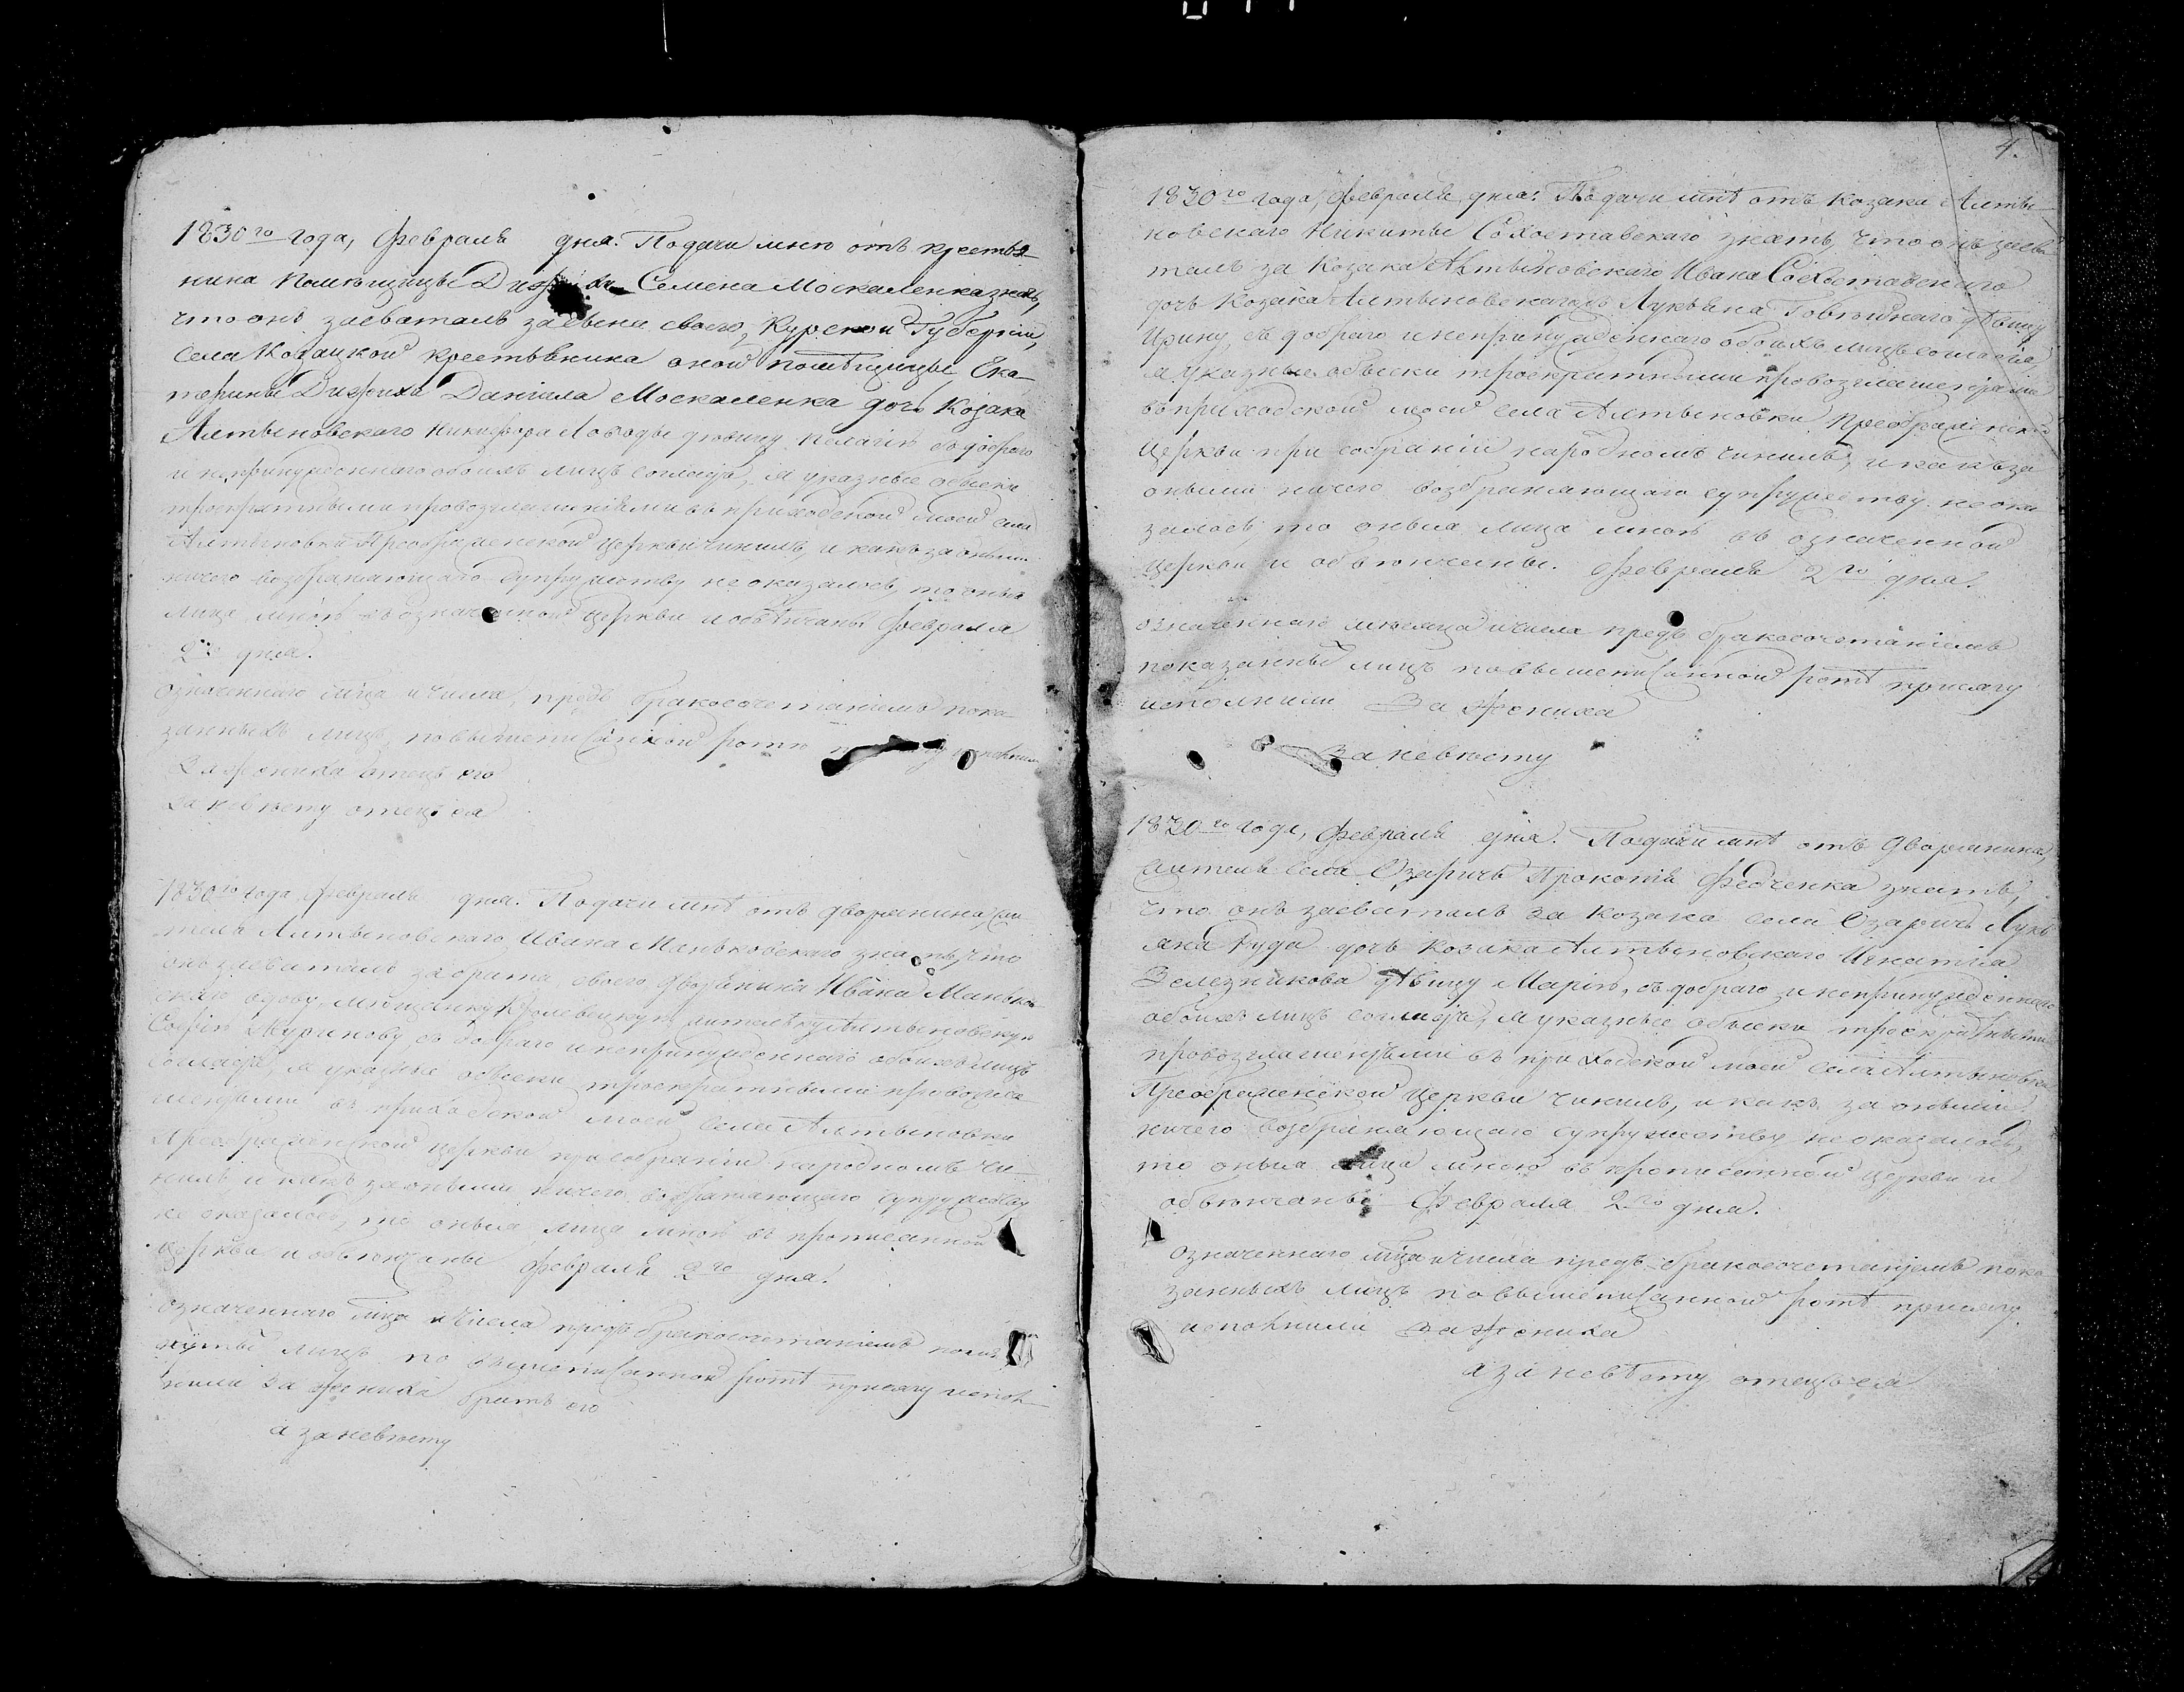 1830го года, Февраля дня. Подачи мнѣ отъ крестья-
нина помѣщицы Семена Москаленка знать,
что онъ засваталъ за сына своего, Курской Губерніи,
села Козацкой крестьянина оной помѣщицы Ека-
терины Даніила Москаленка дочь Козака
Алтыновскаго Никифора Лободы дѣвицу Пелагію съ добраго
и непринужденнаго обоихъ лицъ согласія, я указные обыски
троекратными провозглашеніями въ приходской моей села
Алтыновки Преображенской церкви чинилъ, и какъ за оными
ничего возбраняющаго супружеству не оказалось, то оныя
лица мною въ означенной церкви и обвѣнчаны Февраля
2го дня.
Означеннаго мца и числа, предъ бракосочетаніемъ пока-
занныхъ лицъ по вышеписанной ротѣ исполнили
За жениха отецъ его
За невѣсту отецъ ея
1830го года Февраля дня. Подачи мнѣ отъ дворянина, жи-
теля Алтыновскаго Ивана Маньковскаго знать, что
онъ засваталъ за брата своего дворянина Ивана Маньков-
скаго вдову мѣщанку Кролевецкую жителку Алтыновскую
Софію съ добраго и непринужденнаго обоихъ лицъ
согласія, я указные обыски троекратными провозгла-
шеніями въ приходской моей села Алтыновки
Преображенской церкви при собраніи народномъ чи-
нилъ и какъ за оными ничего возбраняющаго супружеству
не оказалось, то оныя лица мною въ прописанной
церкви и обвѣнчаны Февраля 2го дня.
Означеннаго мца и числа предъ бракосочетаніемъ
лицъ по вышеписанной ротѣ присягу испол-
нили За жениха братъ его
а за невѣсту
4.
1830го года, Февраля дня. Подачи мнѣ отъ козака Алты-
новскаго Никиты знать, что онъ засва-
талъ за Козака Алтыновскаго Ивана
дочь Козака Алтыновскаго Лукьяна дѣвицу
Ирину, съ добраго и непринужденнаго обоихъ лицъ согласія,
я указные обыски троекратными провозглашеніями
въ приходской моей села Алтыновки Преображенской
Церкви при собраніи народномъ чинилъ, и какъ за
оными ничего возбраняющаго супружеству не ока-
залось, то оныя лица мною въ означенной
церкви и обвѣнчены. Февраля 2го дня.
Означеннаго мѣсяца и числа предъ бракосочетаніемъ
показанны лицъ по вышеписанной ротѣ присягу
исполнили За жениха
За невѣсту
1830го года, Февраля дня. Подачи мнѣ отъ дворянина,
жителя села Озаричъ Прокопія Федченка знать,
что онъ засваталъ за козака села Озаричъ Лукь-
яна Руда дочь козака Алтыновскаго Игнатія
дѣвицу Марію, съ добраго и непринужденнаго
обоихъ лицъ согласія, я указные обыски троекратными
провозглашеніями въ приходской моей села Алтыновки
Преображенской Церкви чинилъ, и какъ за оными
ничего возбраняющаго супружеству не оказалось,
то оныя лица мною въ прописанной церкви и
обвѣнчаны Февраля 2го дня.
Означеннаго мца и числа предъ бракосочетаніемъ пока-
занныхъ лицъ по вышеписанной ротѣ присягу
исполнили За жениха
а за невѣсту отецъ ея